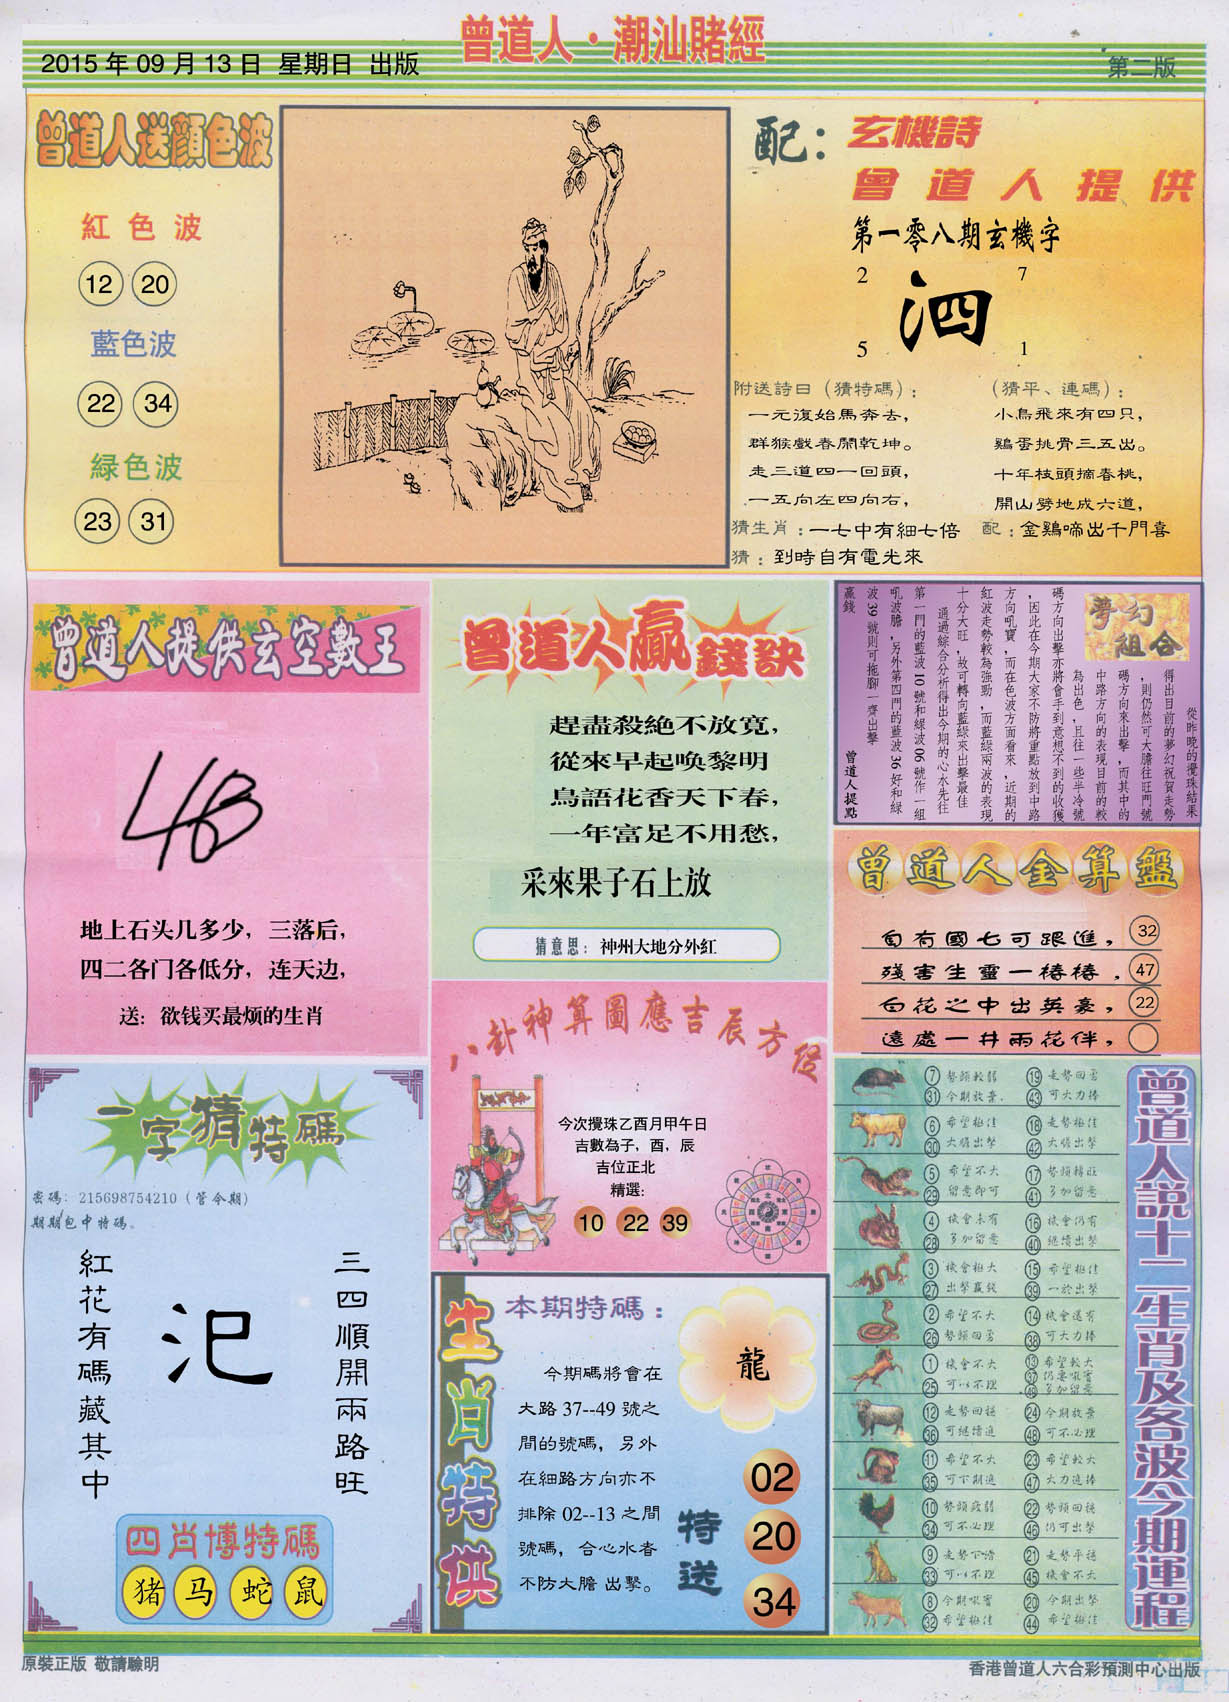 曾道人·潮汕賭經
2015 年 09 月 13 日 星期日 出版
第二版
曾道人送顏色波
紅色波
12 20
藍色波
22 34
緑色波
23 31
配：玄機詩
曾道人提供
第一零八期玄機字
2 7
泗
5 1
附送詩曰（猜特碼）：
一元復始馬奔去，
群猴戲春鬧乾坤。
走三道四一回頭，
一五向左四向右，
（猜平、連碼）：
小鳥飛來有四只，
鷄蛋挑骨三五出。
十年枝頭摘春桃，
開山劈地成六道，
猜生肖：一七中有細七倍 配：金鷄啼出千門喜
猜：到時自有電光來
曾道人提供玄空數王
地上石头几多少，三落后，
四二各门各低分，连天边，
送：欲钱买最烦的生肖
曾道人贏錢訣
趕盡殺絕不放寬，
從來早起喚黎明
鳥語花香天下春，
一年富足不用愁，
采來果子石上放
猜意思：神州大地分外紅
夢幻
組合
從昨晚的攪珠結果
得出目前的夢幻祝賀走勢
，則仍然可大膽往旺門號
碼方向來出擊，而其中的
中路方向的表現目前的較
為出色，且往一些半冷號
碼方向出擊亦將會手到意想不到的收獲
，因此在今期大家不防將重點放到中路
方向吼寶，而在色波方面看來，近期的
紅波走勢較為強勁，而藍綠兩波的表現
十分大旺，故可轉向藍綠來出擊最佳
通過綜合分析得出今期的心水先往
第一門的藍波 10 號和綠波 06 號作一組
吼波膽，另外第四門的藍波 36 好和綠
波 39 號則可拖腳一齊出擊
贏錢
曾道人提點
曾道人金算盤
自有國七可跟進， 32
殘害生靈一樁樁． 47
白花之中出英豪， 22
遠處一井兩花伴，
八卦神算圖應吉辰方位
今次攪珠乙酉月甲午日
吉數為子，酉，辰
吉位正北
精選：
10 22 39
一字猜特碼
密碼：215698754210（管令期）
期期包中特碼。
三四順開兩路旺
汜
紅花有碼藏其中
四肖博特碼
猪 马 蛇 鼠
生肖特供
本期特碼：
龍
今期碼將會在
大路 37--49 號之
間的號碼，另外
在細路方向亦不
排除 02--13 之間
號碼，合心水者
不防大膽 出擊。
特送
02
20
34
曾道人説十二生肖及各波今期運程
7 勢頭較弱 19 走勢回勇
31 今期放棄． 43 可大力捧
6 希望極佳 18 走勢極佳
30 大膽出擊 42 大膽出擊
5 希望不大 17 勢頭轉旺
29 留意即可 41 多加留意
4 機會未有 16 機會仍有
28 多加留意 40 繼續出擊
3 機會極大 15 希望極佳
27 出擊贏錢 39 一於出擊
2 希望不大 14 機會還有
26 勢頭回勇 38 可大力捧
1 機會不大 13 希望較大
25 可以不理 37 仍要吼實
49 多加留意
12 走勢回穩 24 今期放棄
36 可繼續追 48 可不必理
11 希望不大 23 希望較大
35 可下期追 47 大力追捧
10 勢頭疲弱 22 勢頭回穩
34 可不必理 46 仍可出擊
9 走勢下滑 21 走勢平穩
33 可以不理 45 機會不大
8 今期吼實 20 今期出擊
32 希望極佳 44 希望極佳
原裝正版 敬請驗明
香港曾道人六合彩預測中心出版